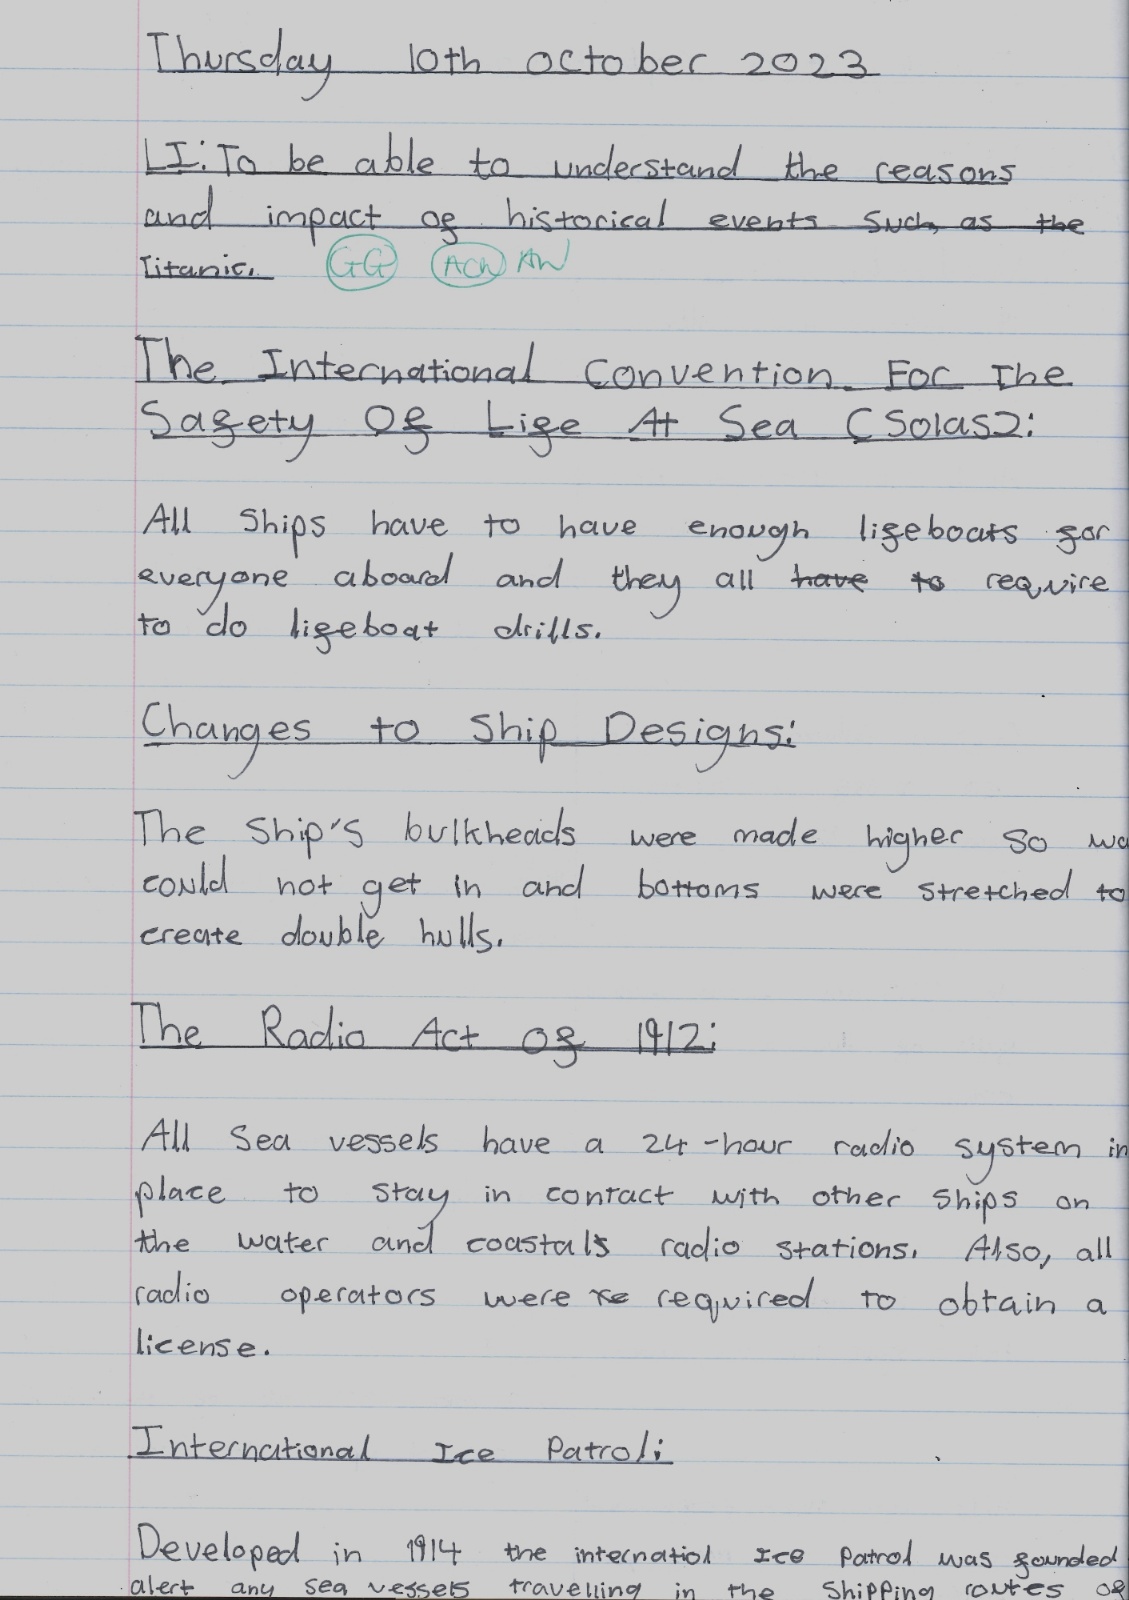 Thursday 10th october 2023
LI: To be able to understand the reasons
and impact of historical events such as the
Titanic. GG ACh AW
The International Convention For The
Safety Of Life At Sea (Solas):
All ships have to have enough lifeboats for
everyone aboard and they all have to require
to do lifeboat drills.
Changes to Ship Designs:
The Ship's bulkheads were made higher so wa
could not get in and bottoms were stretched to
create double hulls.
The Radio Act of 1912:
All sea vessels have a 24-hour radio system in
place to stay in contact with other ships on
the water and coastals radio stations. Also, all
radio operators were re required to obtain a
license.
International Ice Patrol:
Developed in 1914 the internatiol Ice Patrol was founded
alert any sea vessels travelling in the shipping routes of